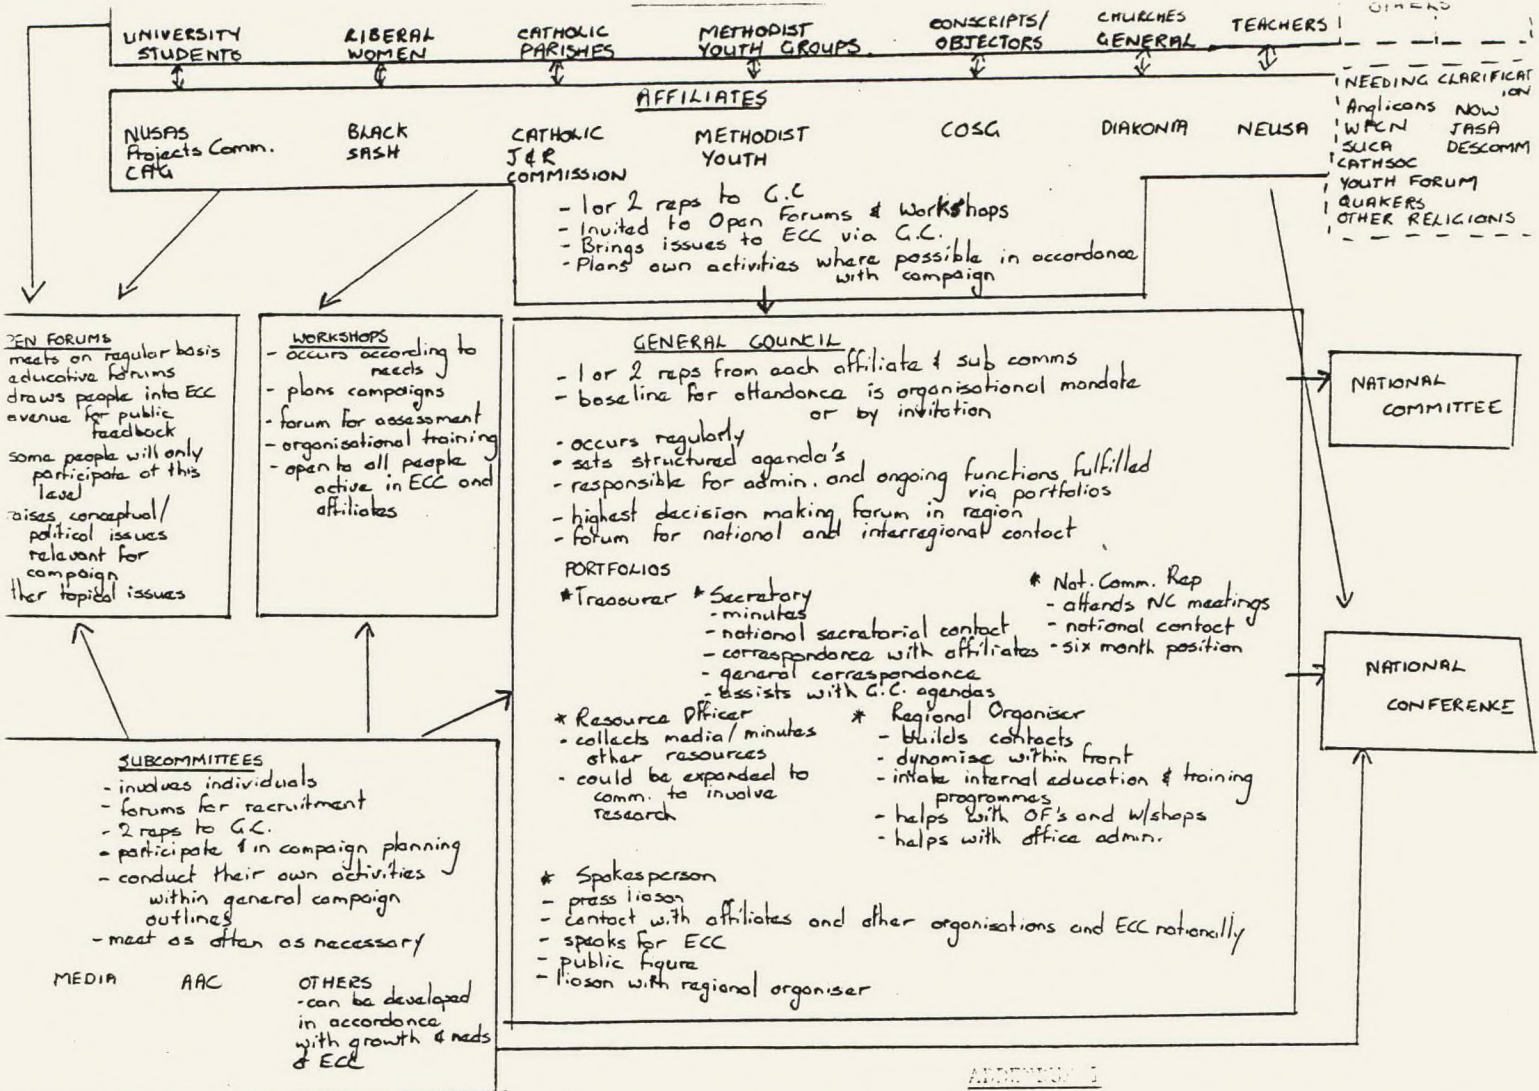 UNIVERSITY
STUDENTS
LIBERAL
WOMEN
CATHOLIC
PARISHES
METHODIST
YOUTH GROUPS
CONSCRIPTS/
OBJECTORS
CHURCHES
GENERAL
TEACHERS
OTHERS
AFFILIATES
NUSAS
Projects Comm.
CAG
BLACK
SASH
CATHOLIC
J & R
COMMISSION
METHODIST
YOUTH
COSG
DIAKONIA
NEUSA
- 1 or 2 reps to G.C
- Invited to Open Forums & Workshops
- Brings issues to ECC via G.C.
- Plans own activities where possible in accordance
with campaign
NEEDING CLARIFICAT
ION
Anglicans NOW
WPCN JASA
SUCA DESCOMM
CATHSOC
YOUTH FORUM
QUAKERS
OTHER RELIGIONS
PEN FORUMS
meets on regular basis
educative forums
draws people into ECC
avenue for public
feedback
some people will only
participate at this
level
raises conceptual/
political issues
relevant for
campaign
ther topical issues
WORKSHOPS
- occurs according to
needs
- plans campaigns
- forum for assessment
- organisational training
- open to all people
active in ECC and
affiliates
GENERAL COUNCIL
- 1 or 2 reps from each affiliate & sub comms
- baseline for attendance is organisational mandate
or by invitation
- occurs regularly
- sets structured agenda's
- responsible for admin. and ongoing functions fulfilled
via portfolios
- highest decision making forum in region
- forum for national and interregional contact
PORTFOLIOS
* Treasurer
* Secretary
- minutes
- national secretarial contact
- correspondance with affiliates
- general correspondence
- assists with G.C. agendas
* Nat. Comm. Rep
- attends NC meetings
- national contact
- six month position
* Resource Officer
- collects media/minutes
other resources
- could be expanded to
comm. to involve
research
* Regional Organiser
- builds contacts
- dynamise within front
- intake internal education & training
programmes
- helps with OF's and W/shops
- helps with office admin.
* Spokesperson
- press liason
- contact with affiliates and other organisations and ECC nationally
- speaks for ECC
- public figure
- liason with regional organiser
NATIONAL
COMMITTEE
NATIONAL
CONFERENCE
SUBCOMMITTEES
- involves individuals
- forums for recruitment
- 2 reps to G.C.
- participate & in campaign planning
- conduct their own activities
within general campaign
outlines
- meet as often as necessary
MEDIA
AAC
OTHERS
- can be developed
in accordance
with growth & needs
of ECC